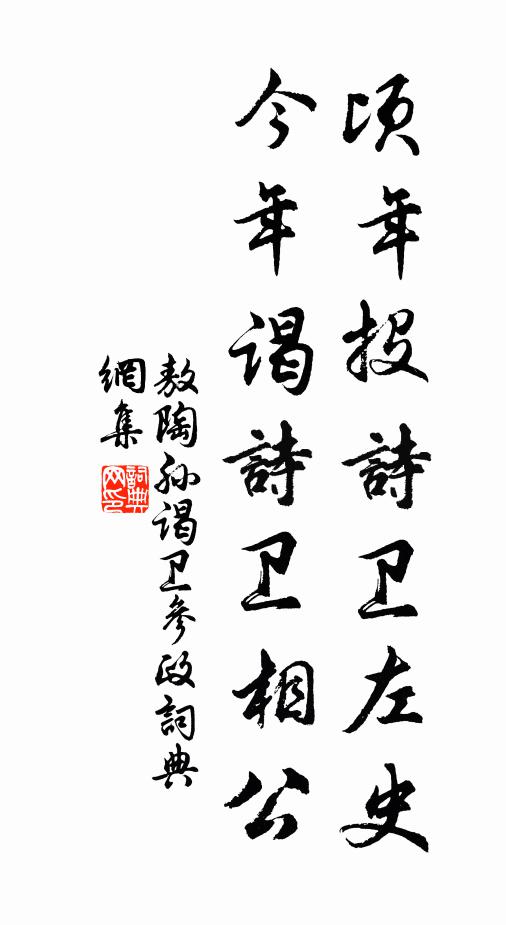 顷年投詩卫左史
今年谒詩卫相公
敖陶孙谒卫参政詞典
網集
詞典網印